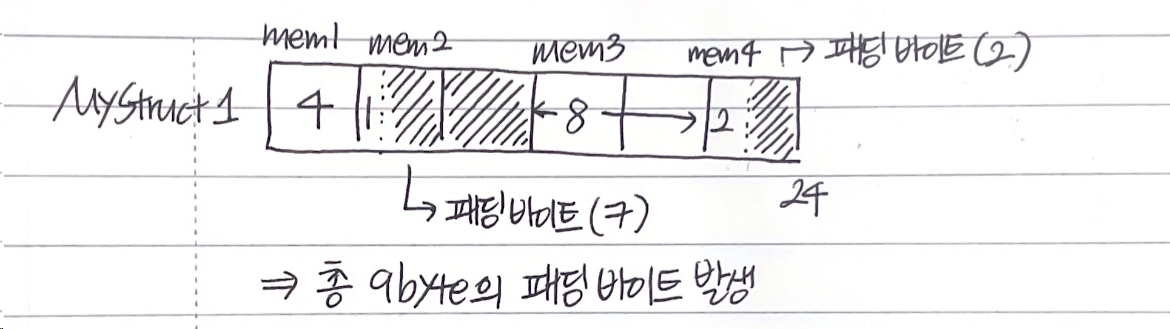 mem1 mem2 mem3 mem4 → 패딩 바이트(2)
MyStruct1 4 1 8 2
↳ 패딩바이트(7) 24
⇒ 총 9byte의 패딩 바이트 발생